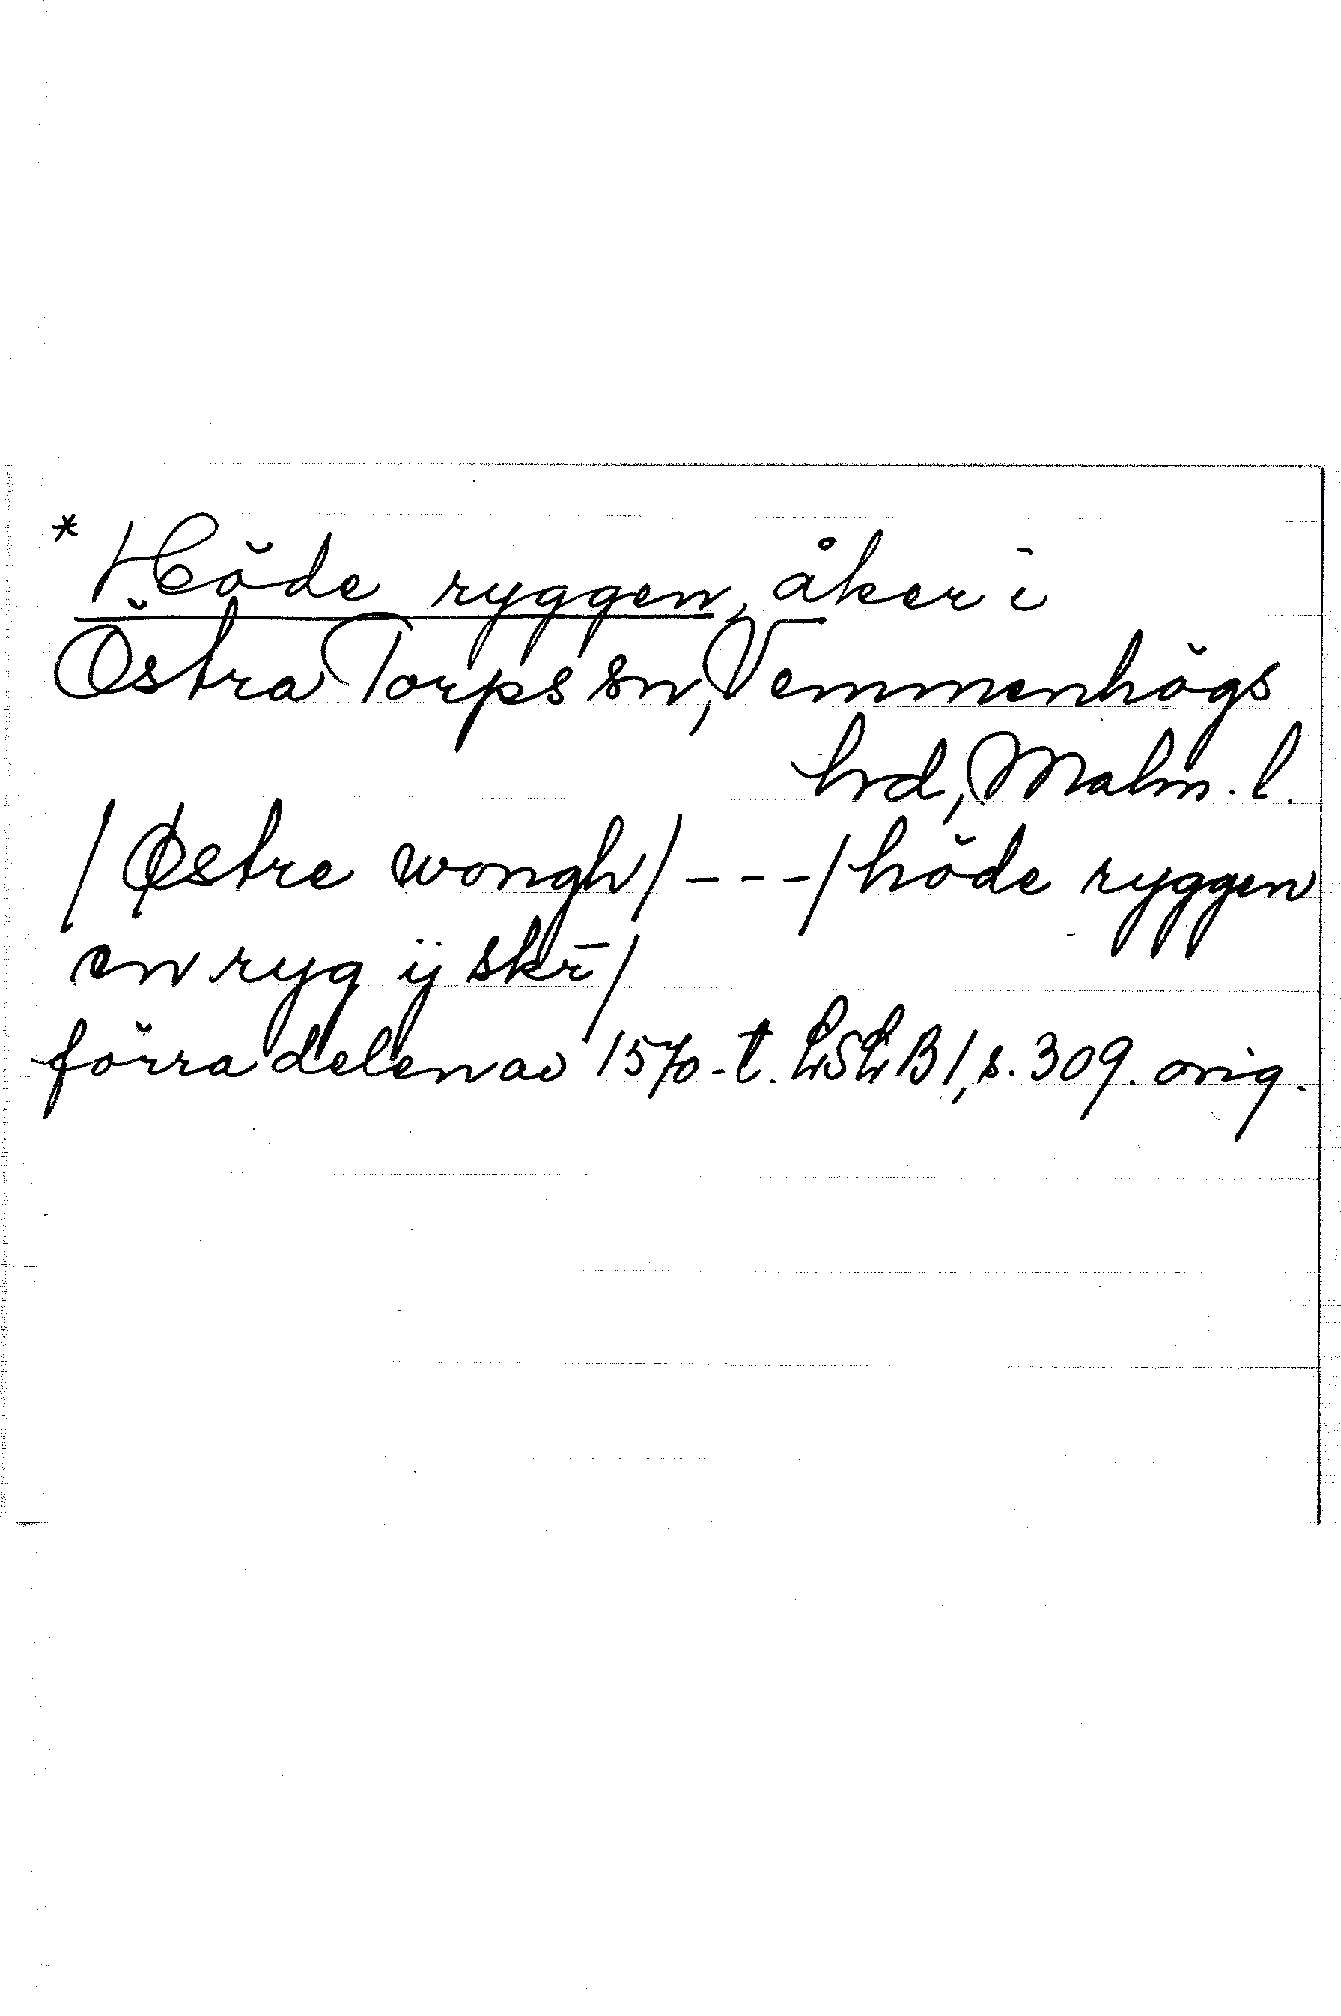 * Höde ryggen, åker i
Östra Torps sn, Vemmenhögs
hrd, Malm. l.
/Østre wongh/ - - - /höde ryggen
en ryg ij skr̄/
förra delen av 1570-t. LSLB 1, s. 309. orig.